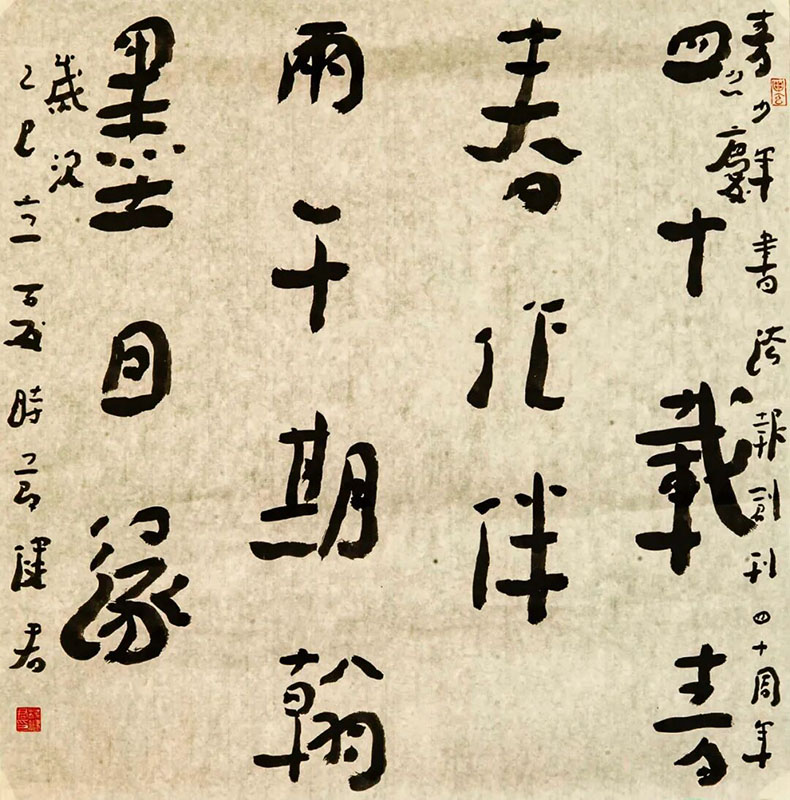 青少年書法報創刊四十周年
慶
四十載青
春作伴
兩千期翰
墨因緣
歲次
乙巳立夏時節健君